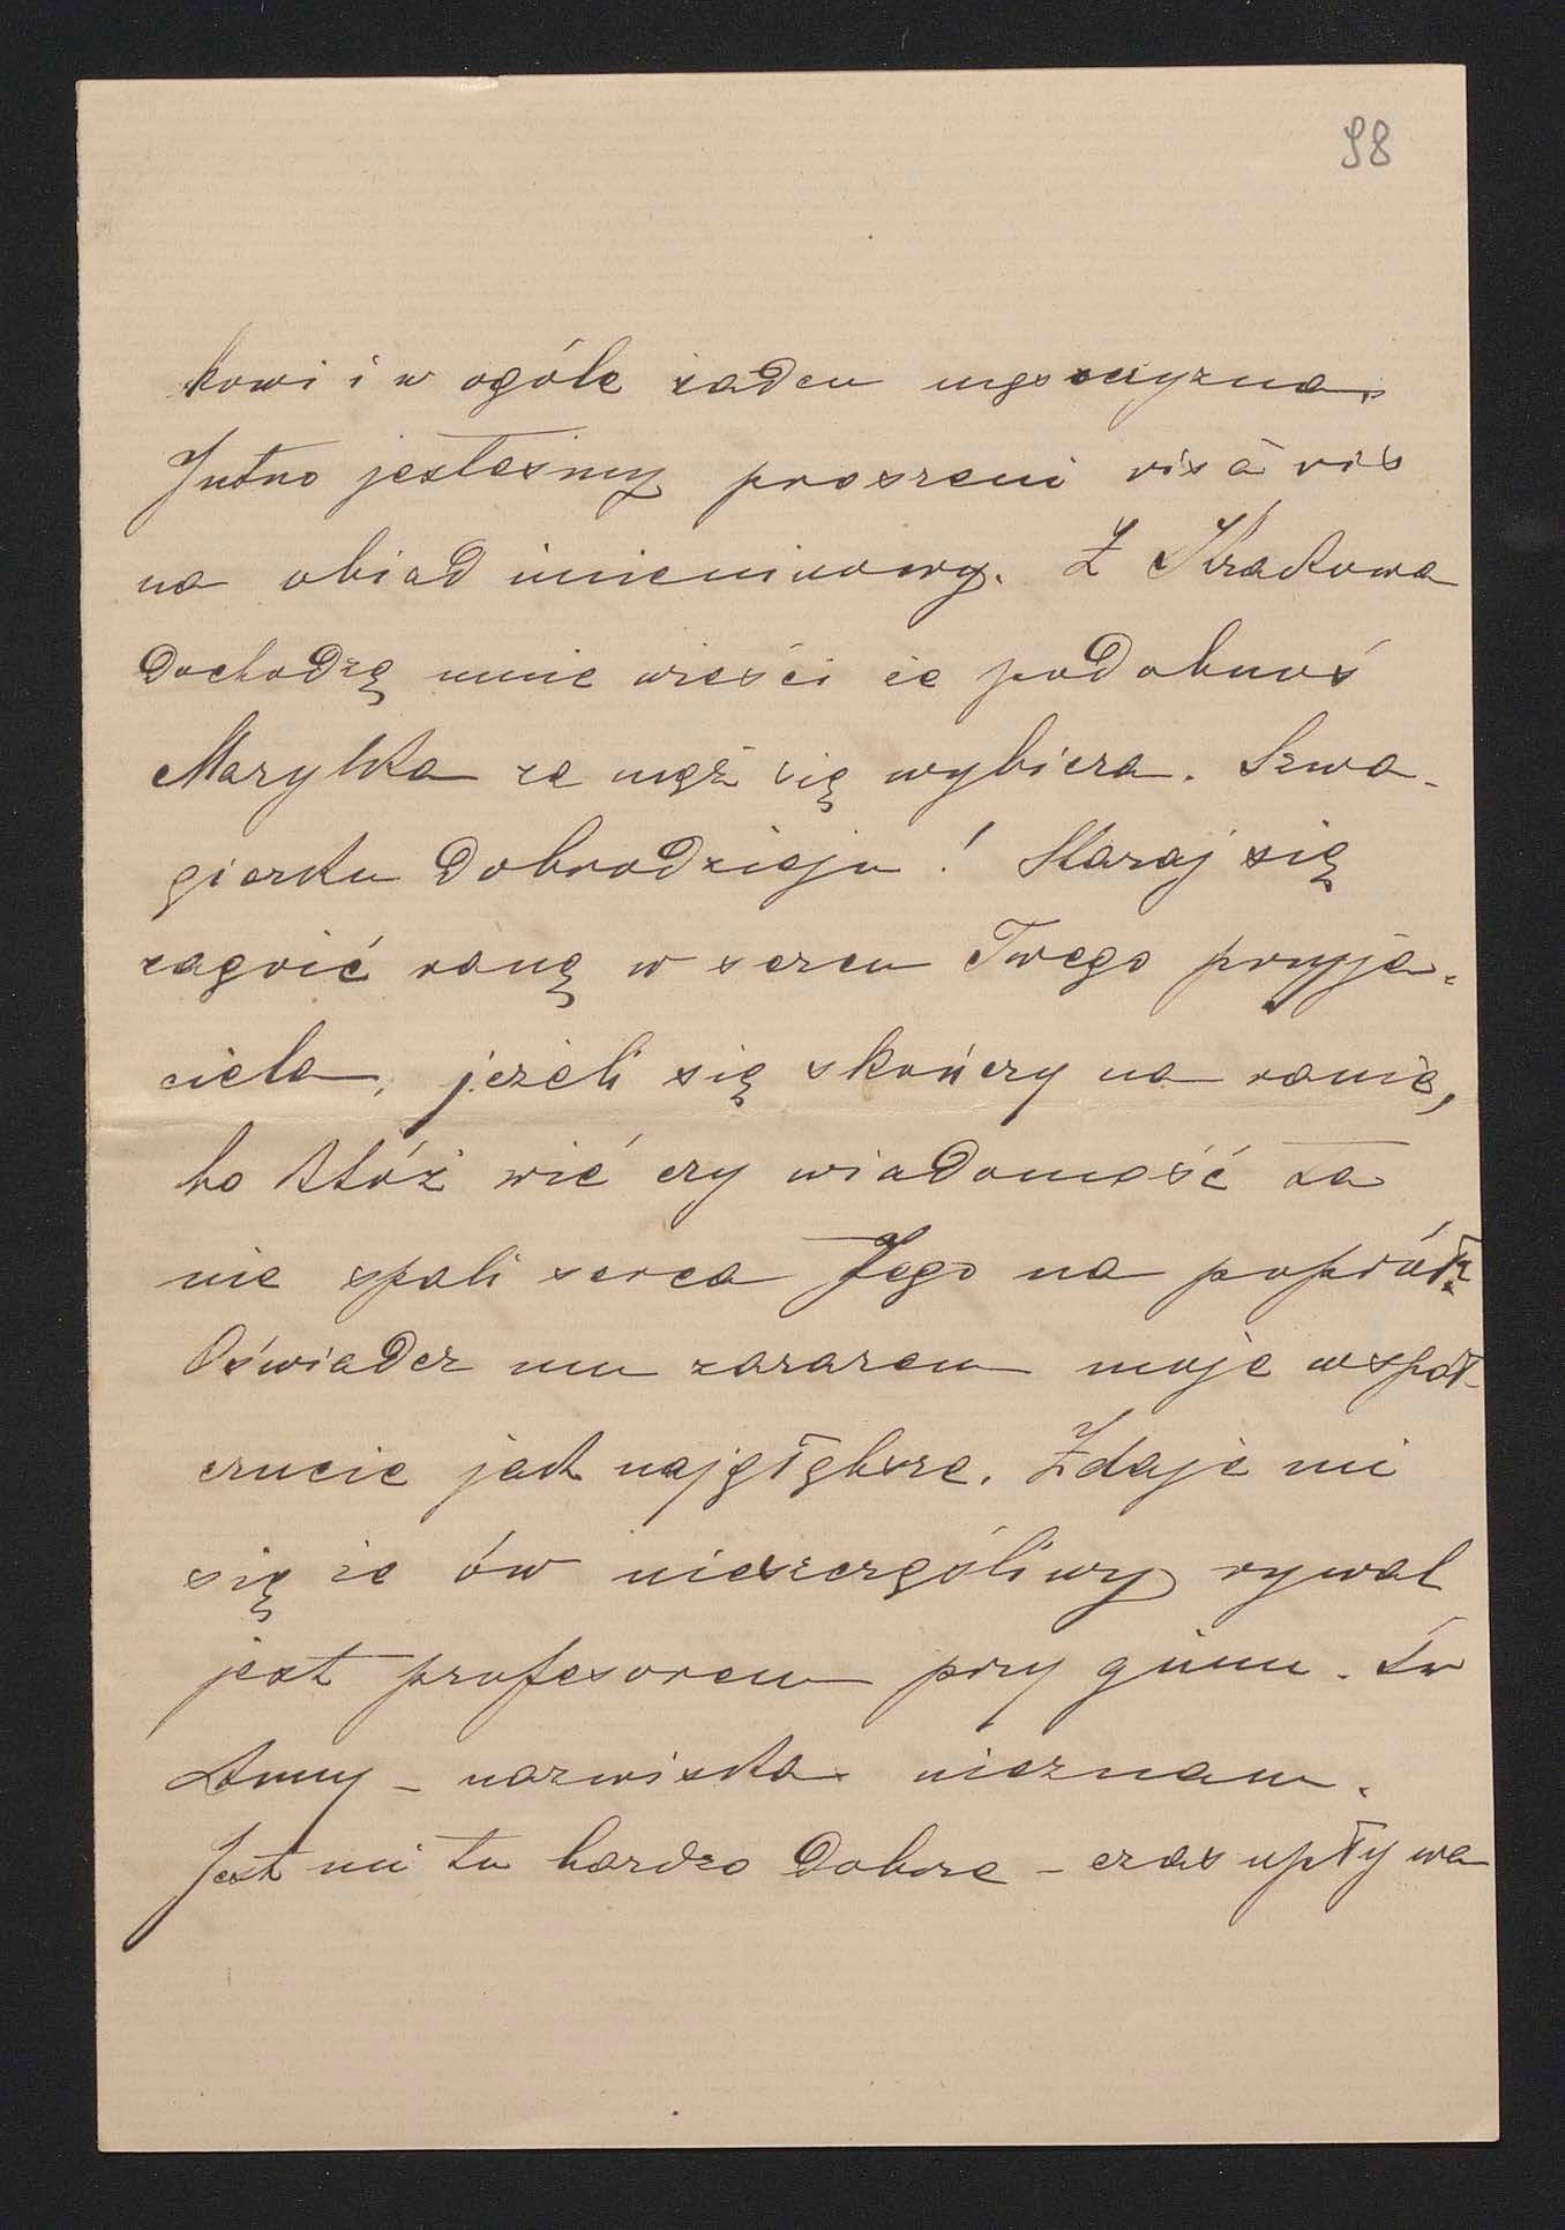 98
kowi i w ogóle żaden mężczyzna.
Jutro jesteśmy proszeni vis à vis
na obiad imieninowy. Z Krakowa
dochodzą mnie wieści że podobnoś
Marylka za mąż się wybiera. Szwa-
gierku Dobrodzieju! Staraj się
zagoić ranę w sercu Twego przyja-
ciela, jeżeli się skończy na ranie,
bo któż wié czy wiadomość ta
nie spali serca Jego na popiół?
Oświadcz mu zarazem moje współ-
czucie jak najgłębsze. Zdaje mi
się że ów nieszczególiwy rywal
jest profesorem przy gimn. Św
Anny – nazwiska nieznam.
Jest mi tu bardzo dobrze – czas upływa